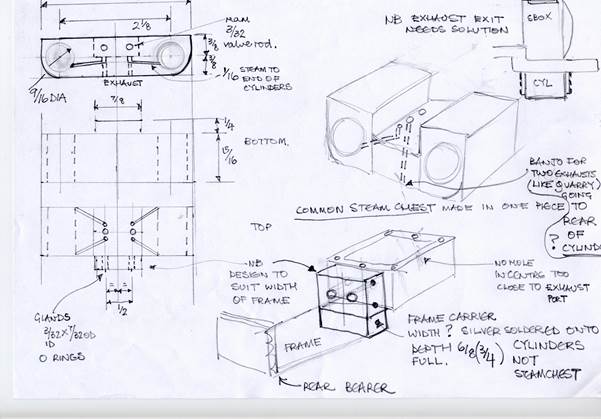 2 1/8
MAX
3/32
VALVE ROD.
3/8
3/8
1/16 STEAM TO
END OF
CYLINDERS
9/16 DIA
EXHAUST
7/8
1/4
BOTTOM.
15/16
TOP
NB
DESIGN TO
SUIT WIDTH
OF FRAME
= =
1/2
GLANDS
3/32 X 7/32 OD
ID
O RINGS
NB EXHAUST EXIT
NEEDS SOLUTION
SBOX
CYL
BANJO FOR
TWO EXHAUSTS
(LIKE QUARRY)
GOING
TO
REAR
OF
CYLINDER
?
COMMON STEAM CHEST MADE IN ONE PIECE
NO HOLE
IN CENTRE TOO
CLOSE TO EXHAUST
PORT
FRAME CARRIER
WIDTH? SILVER SOLDERED ONTO
DEPTH 6/8 (3/4) CYLINDERS
FULL. NOT
STEAMCHEST
FRAME
REAR BEARER